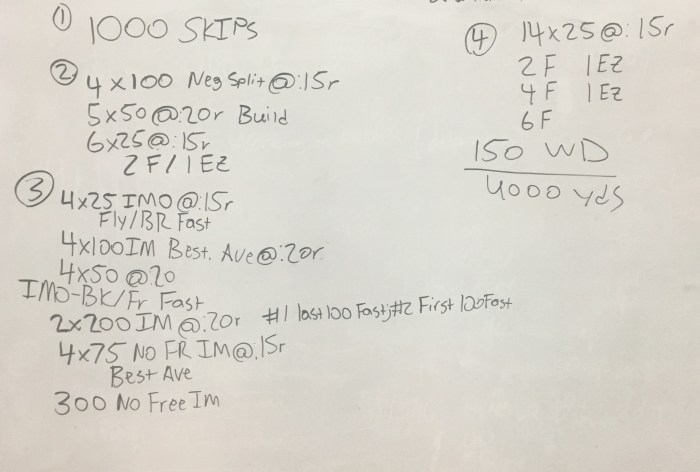 ① 1000 SKIPS
② 4 x 100 Neg Split @ :15r
5 x 50 @ :20r Build
6 x 25 @ :15r
2 F / 1 EZ
③ 4 x 25 IMO @ :15r
Fly/BR Fast
4 x 100 IM Best. Ave @ :20r
4 x 50 @ 20
IMO - BK/Fr Fast
2 x 200 IM @ :20r #1 last 100 Fast; #2 First 100 Fast
4 x 75 NO FR IM @ :15r
Best Ave
300 No Free Im
④ 14 x 25 @ :15r
2 F 1 EZ
4 F 1 EZ
6 F
150 WD
4000 yds